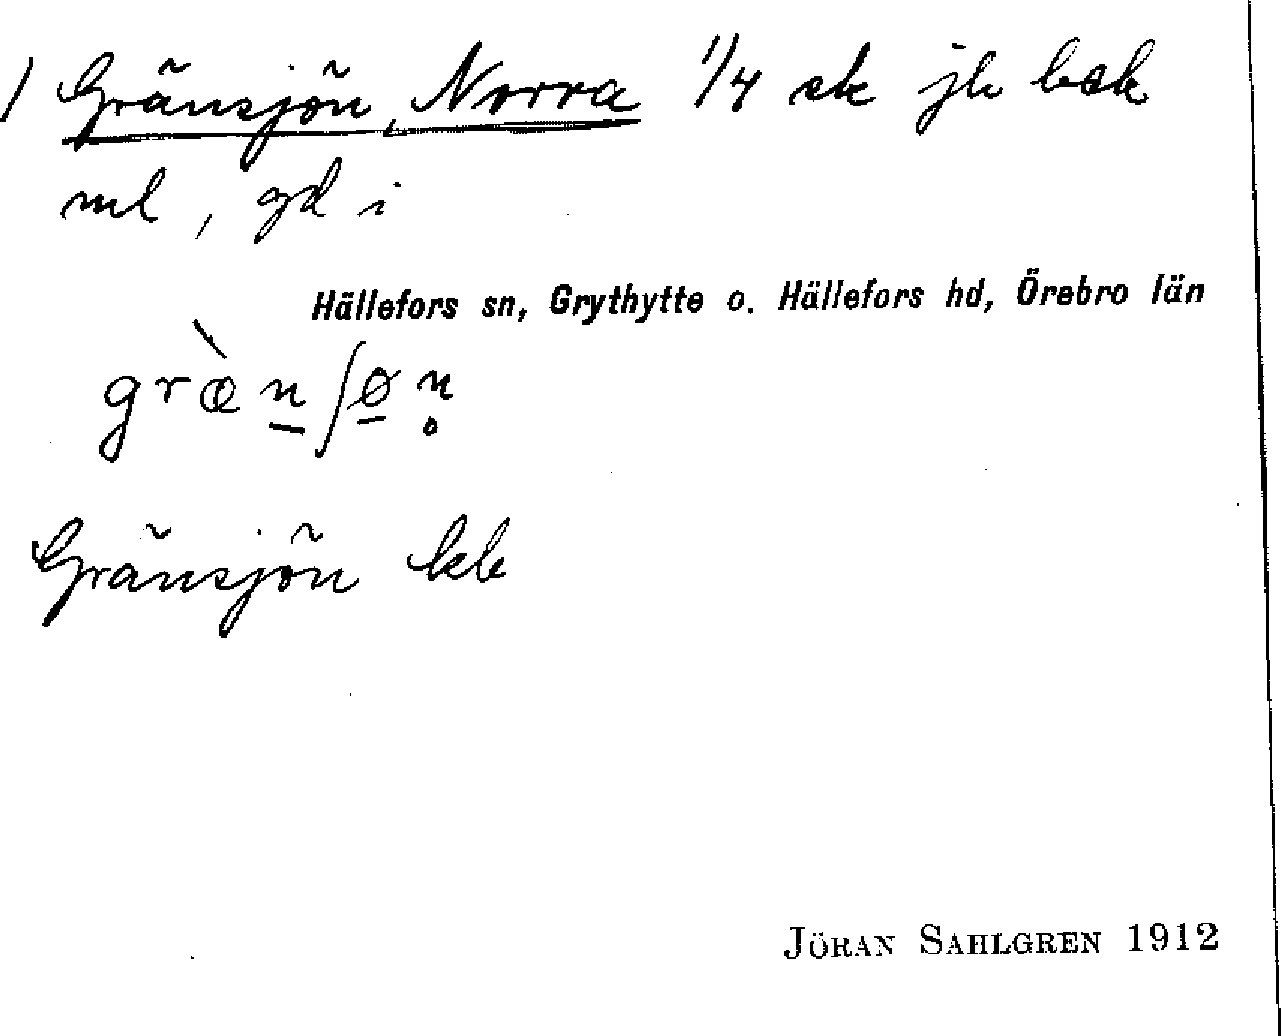 1) Gränsjön, Norra 1/4 sk jb bsk
ml, gd i
Hällefors sn, Grythytte o. Hällefors hd, Örebro län
græ̀n̲ʃø̲n̥
Gränsjön kb
JÖRAN SAHLGREN 1912